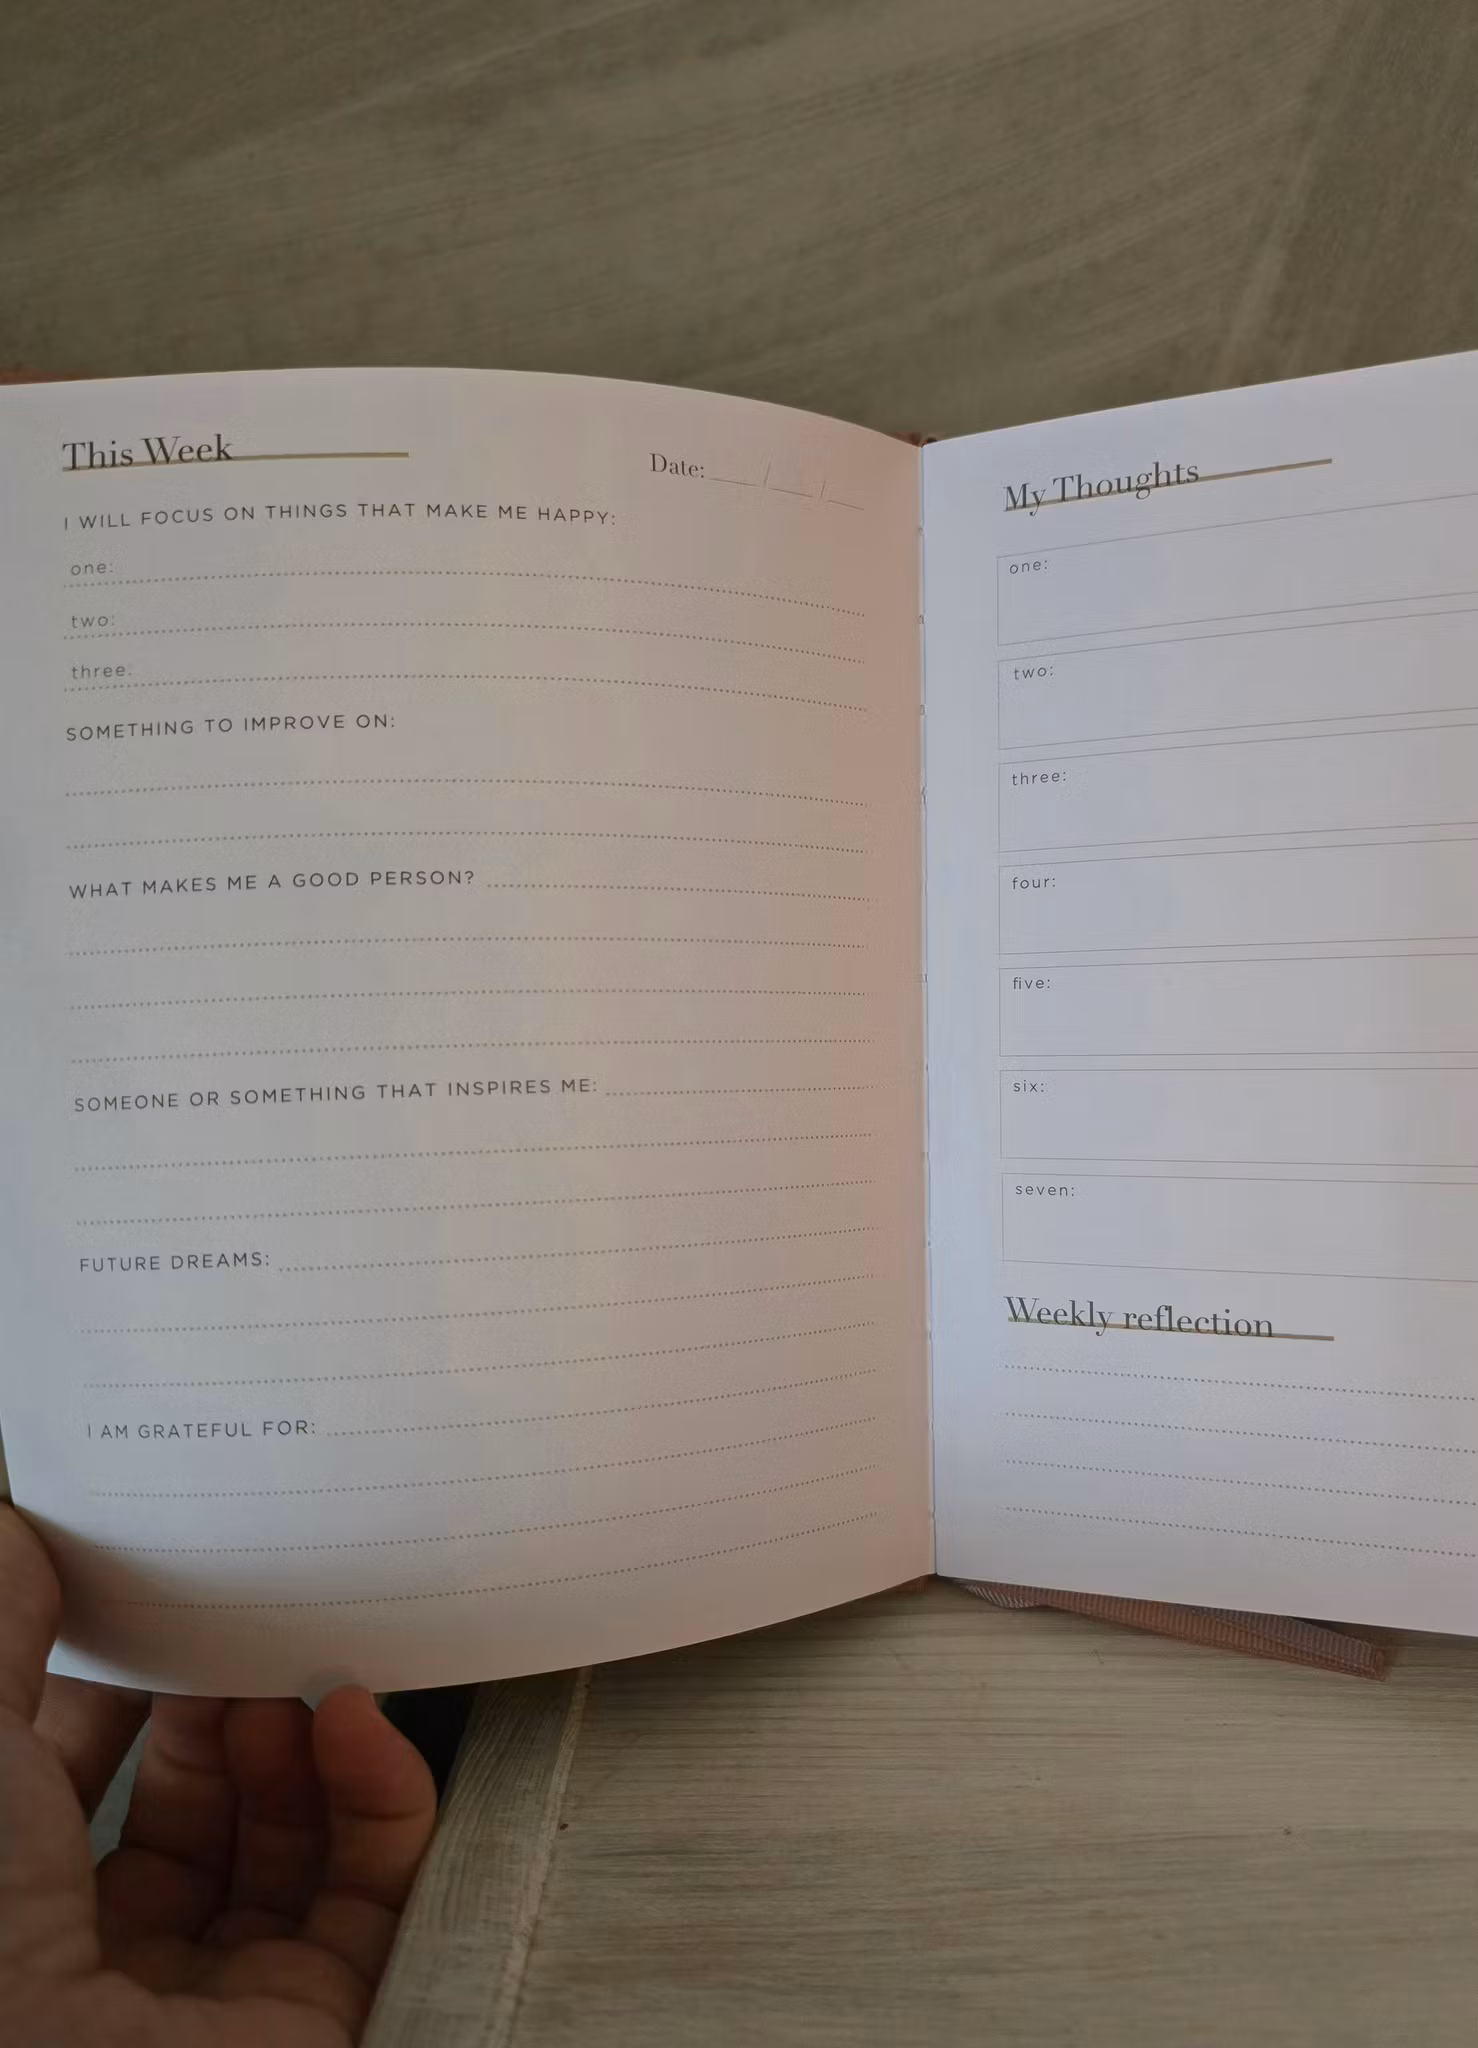 This Week
Date: ___/___/___
I WILL FOCUS ON THINGS THAT MAKE ME HAPPY:
one:
two:
three:
SOMETHING TO IMPROVE ON:
WHAT MAKES ME A GOOD PERSON?
SOMEONE OR SOMETHING THAT INSPIRES ME:
FUTURE DREAMS:
I AM GRATEFUL FOR:
My Thoughts
one:
two:
three:
four:
five:
six:
seven:
Weekly reflection